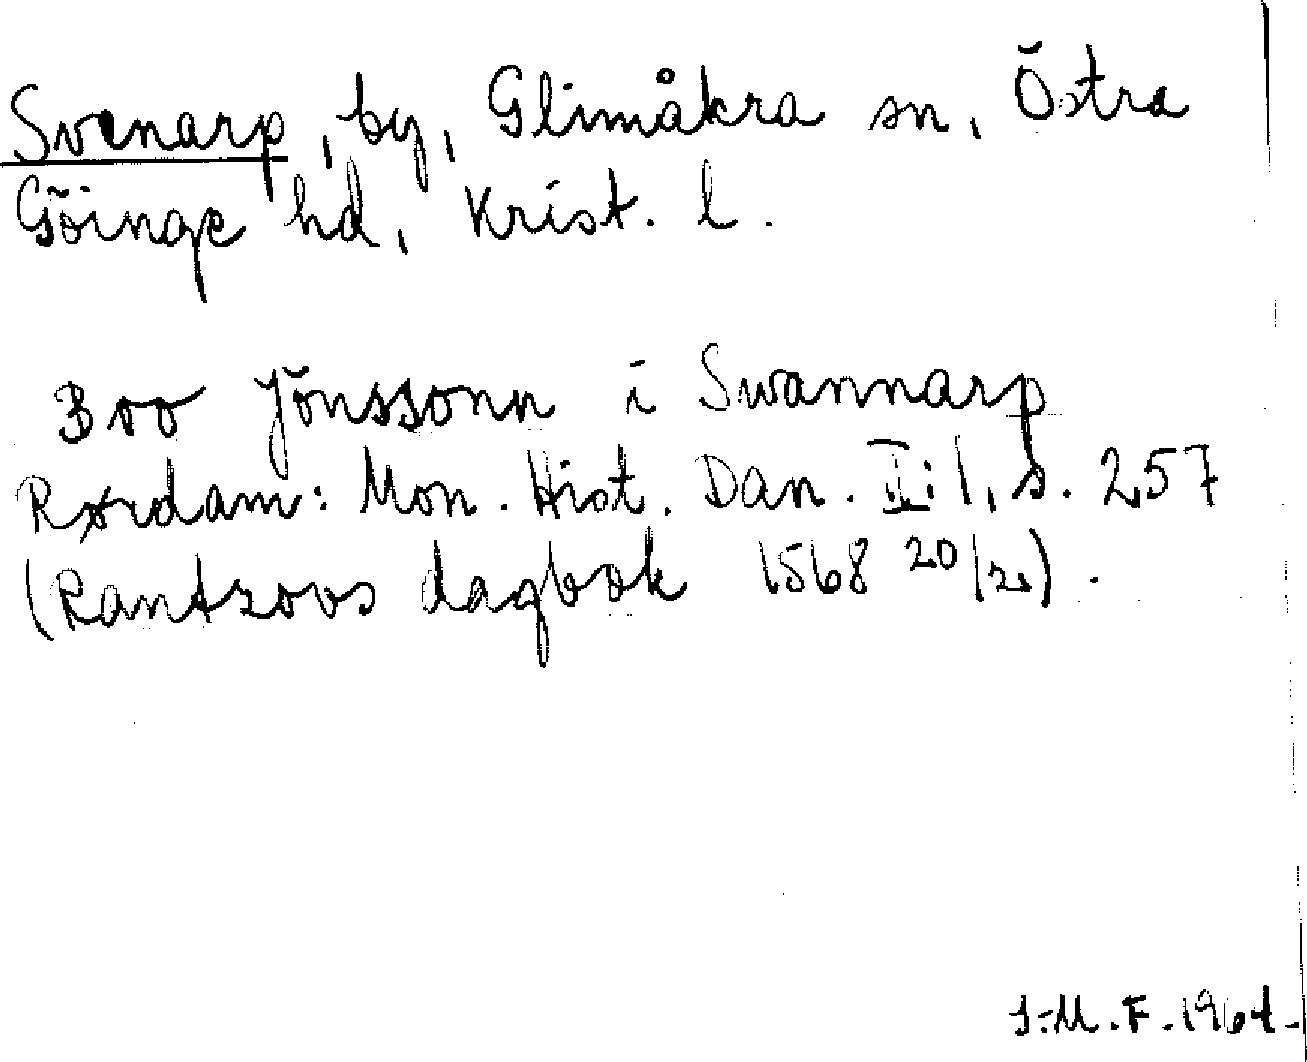 Svenarp, by, Glimåkra sn, Östra
Göinge hd, Krist. l.
Boo Jönssonn i Swannarp
Rørdam: Mon. Hist. Dan. II:1, s. 257
(Rantzovs dagbok 1568 20/
J.M.F. 1964.